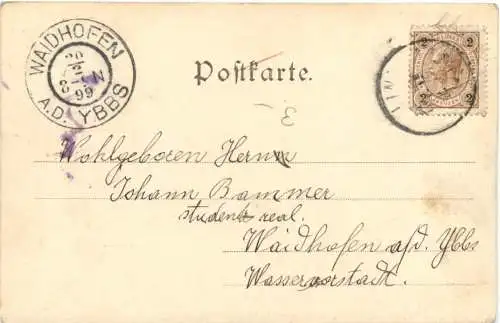 WAIDHOFEN
A.D. YBBS
99
Postkarte.
2 2
2 2
LINZ
Wohlgeboren Herrn
Johann Bammer
student real.
Waidhofen a/d. Ybbs
Wasservorstadt.